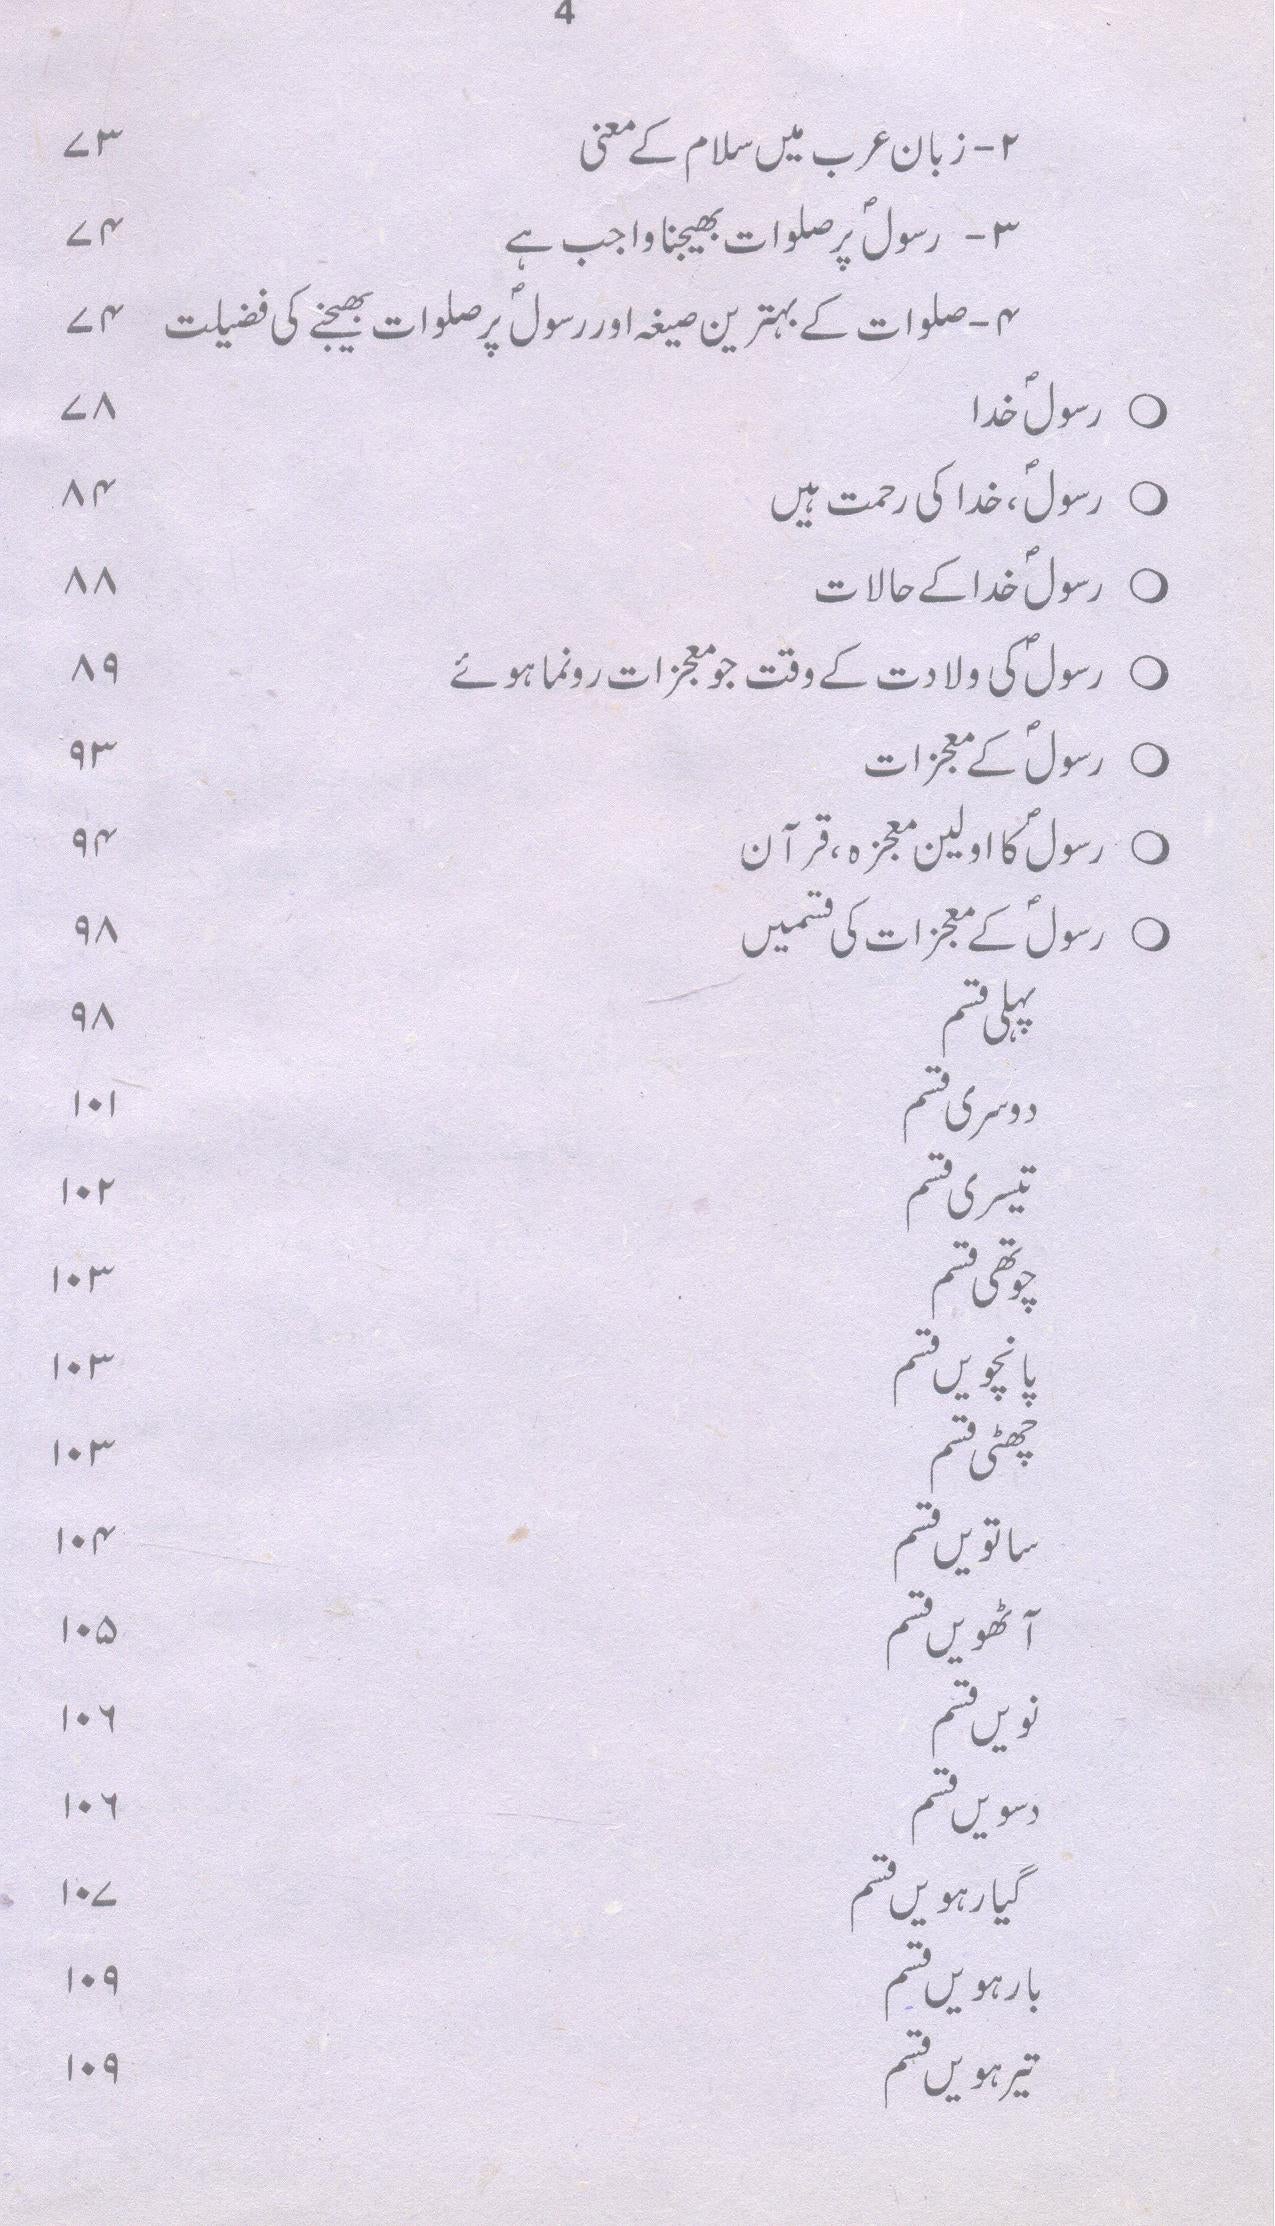 4
۲- زبان عرب میں سلام کے معنی ۷۳
۳- رسولؐ پر صلوات بھیجنا واجب ہے ۷۴
۴- صلوات کے بہترین صیغہ اور رسولؐ پر صلوات بھیجنے کی فضیلت ۷۴
○ رسولؐ خدا ۷۸
○ رسولؐ، خدا کی رحمت ہیں ۸۴
○ رسولؐ خدا کے حالات ۸۸
○ رسولؐ کی ولادت کے وقت جو معجزات رونما ہوئے ۸۹
○ رسولؐ کے معجزات ۹۳
○ رسولؐ کا اولین معجزہ، قرآن ۹۴
○ رسولؐ کے معجزات کی قسمیں ۹۸
پہلی قسم ۹۸
دوسری قسم ۱۰۱
تیسری قسم ۱۰۲
چوتھی قسم ۱۰۳
پانچویں قسم ۱۰۳
چھٹی قسم ۱۰۳
ساتویں قسم ۱۰۴
آٹھویں قسم ۱۰۵
نویں قسم ۱۰۶
دسویں قسم ۱۰۶
گیارہویں قسم ۱۰۷
بارہویں قسم ۱۰۹
تیرہویں قسم ۱۰۹